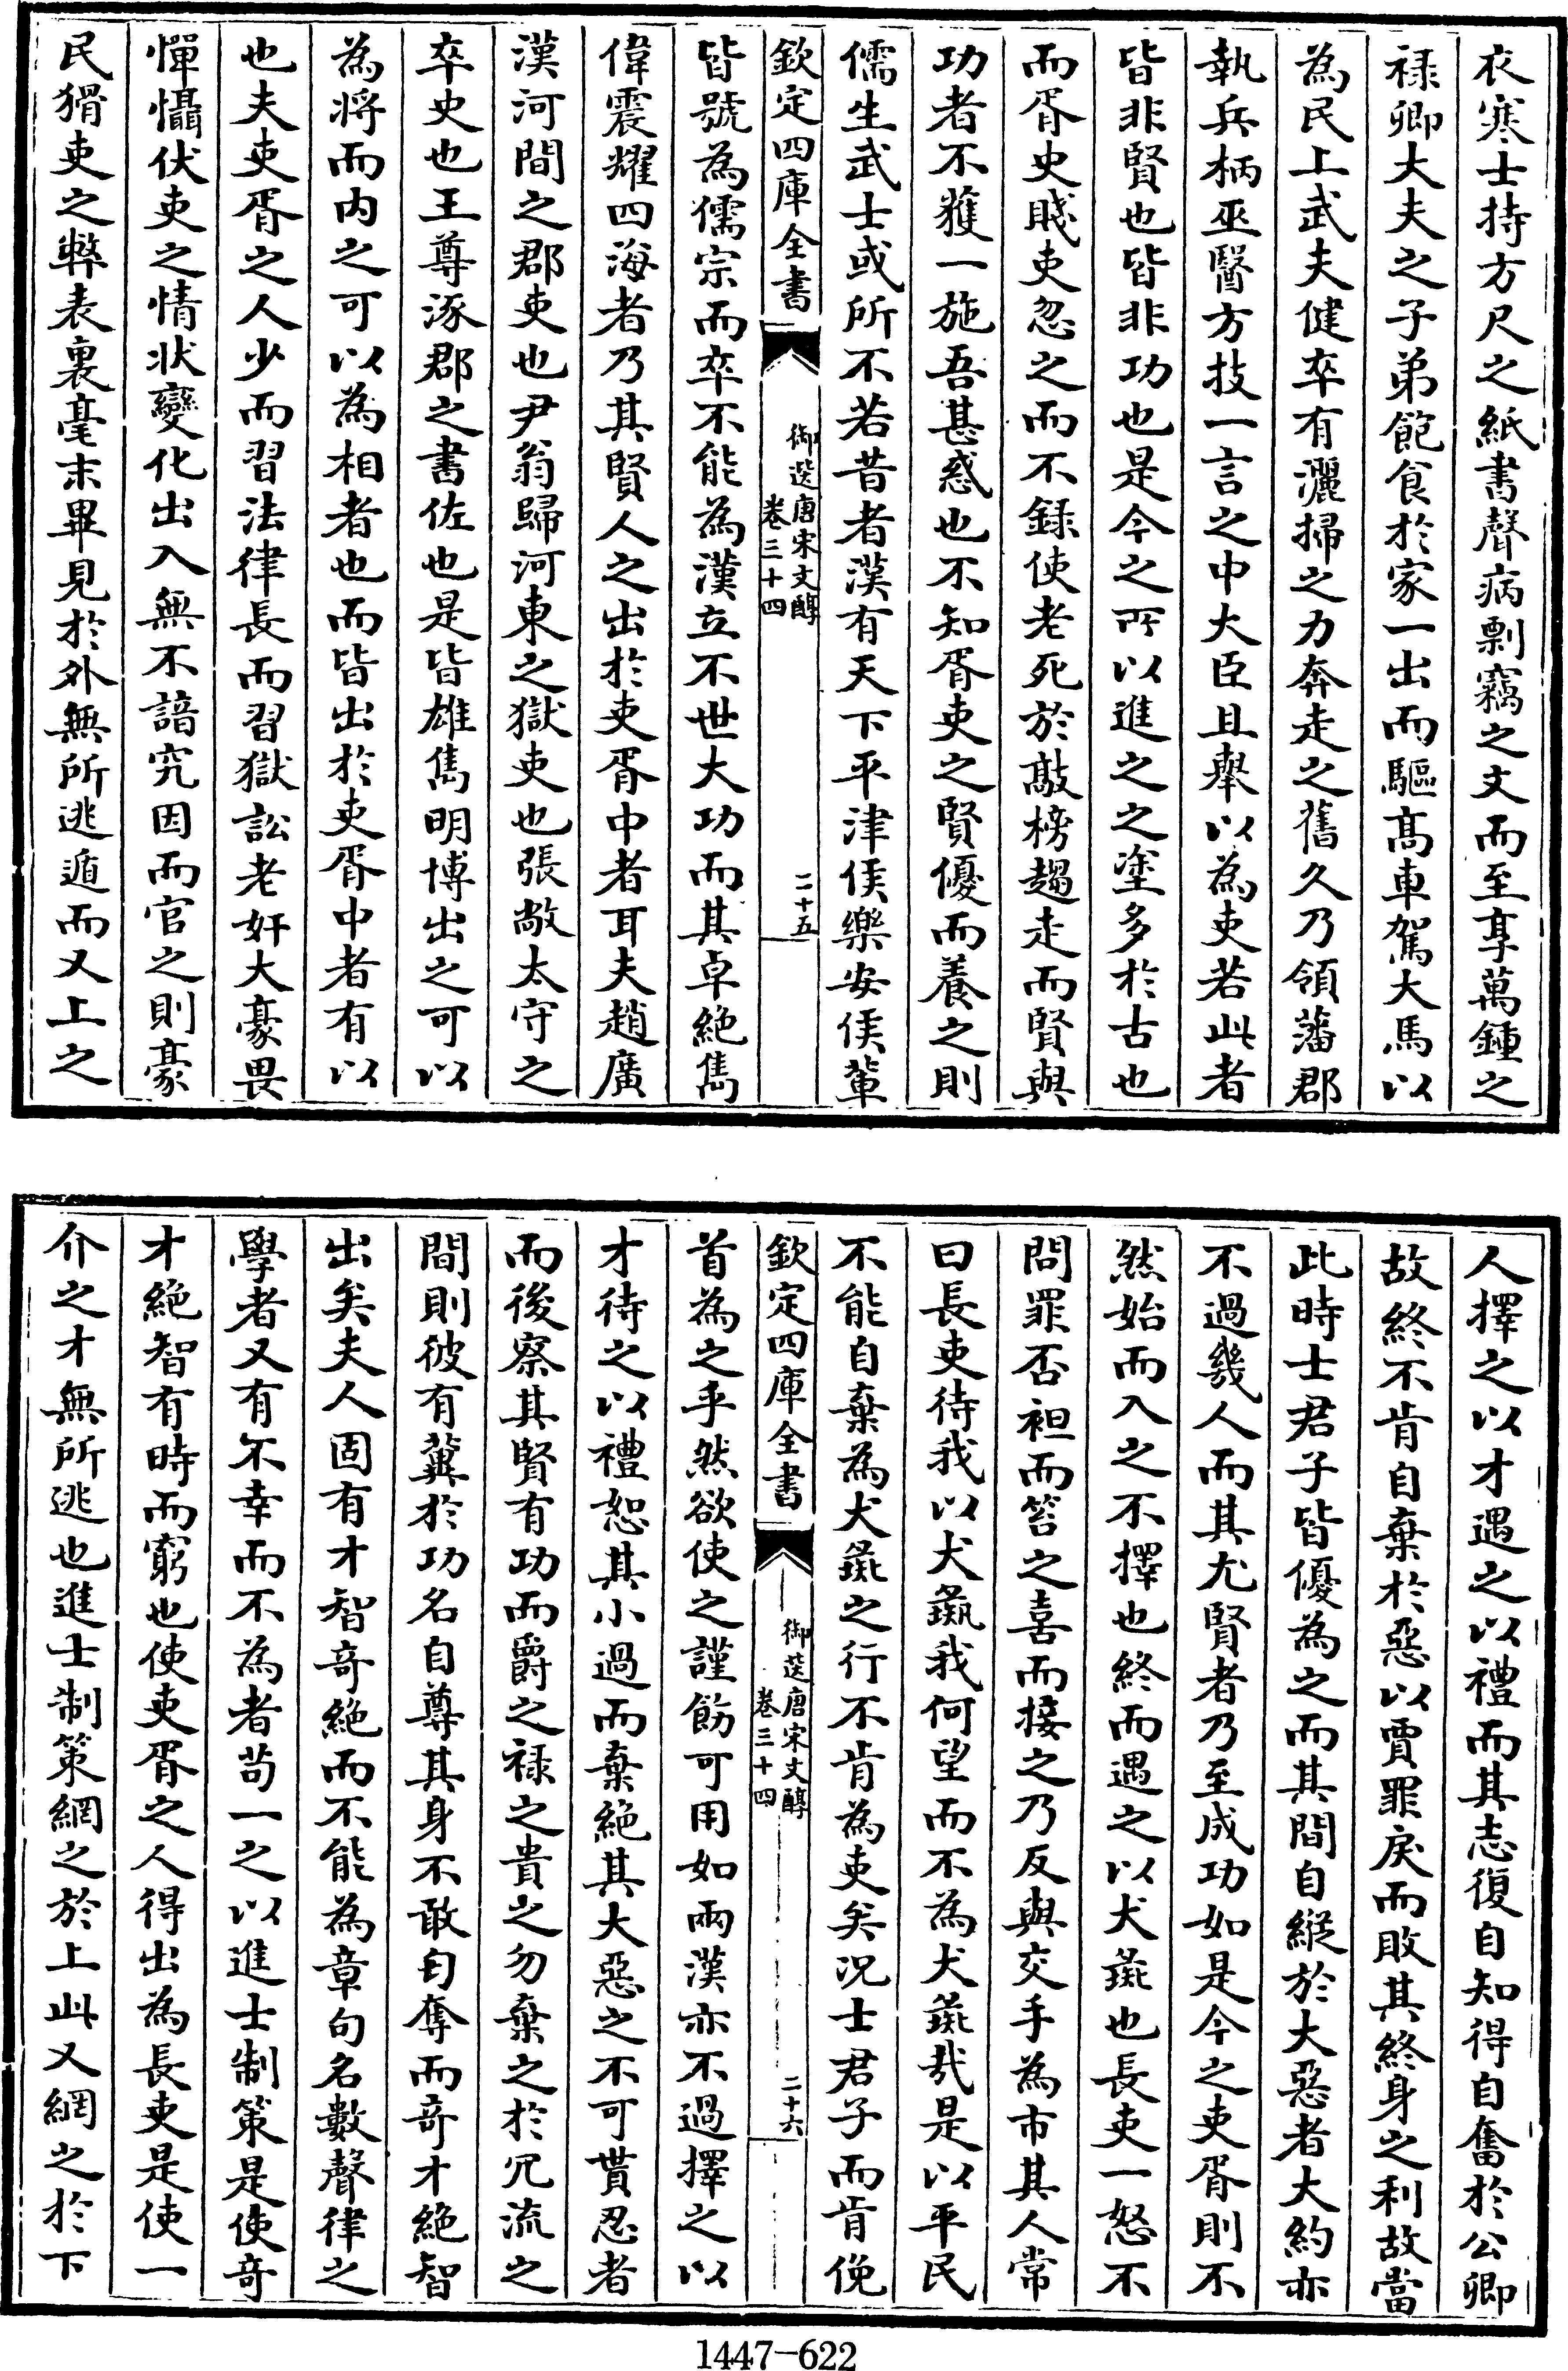 衣寒士持方尺之紙書聲病剽竊之文而至享萬鍾之
禄卿大夫之子弟飽食於家一出而驅髙車駕大馬以
為民上武夫健卒有灑掃之力奔走之舊久乃領藩郡
執兵柄巫醫方技一言之中大臣且舉以為吏若此者
皆非賢也皆非功也是今之所以進之之塗多於古也
而胥史賤吏忽之而不録使老死於敲榜趨走而賢與
功者不獲一施吾甚惑也不知胥吏之賢優而養之則
儒生武士或所不若昔者漢有天下平津侯樂安侯輩
欽定四庫全書
御選唐宋文醇
卷三十四
二十五
皆號為儒宗而卒不能為漢立不世大功而其卓絶雋
偉震耀四海者乃其賢人之出於吏胥中者耳夫趙廣
漢河間之郡吏也尹翁歸河東之獄吏也張敞太守之
卒史也王尊涿郡之書佐也是皆雄雋明博出之可以
為将而内之可以為相者也而皆出於吏胥中者有以
也夫吏胥之人少而習法律長而習獄訟老奸大豪畏
憚懾伏吏之情状變化出入無不諳究因而官之則豪
民猾吏之弊表裏毫末畢見於外無所逃遁而又上之
人擇之以才遇之以禮而其志復自知得自奮於公卿
故終不肯自棄於惡以賈罪戾而敗其終身之利故當
此時士君子皆優為之而其間自縱於大惡者大約亦
不過幾人而其尤賢者乃至成功如是今之吏胥則不
然始而入之不擇也終而遇之以犬彘也長吏一怒不
問罪否袒而笞之喜而接之乃反與交手為市其人常
曰長吏待我以犬彘我何望而不為犬彘哉是以平民
不能自棄為犬彘之行不肯為吏矣况士君子而肯俛
欽定四庫全書
御選唐宋文醇
卷三十四
二十六
首為之乎然欲使之謹飭可用如兩漢亦不過擇之以
才待之以禮恕其小過而棄絶其大惡之不可貰忍者
而後察其賢有功而爵之禄之貴之勿棄之於冗流之
間則彼有冀於功名自尊其身不敢匄奪而奇才絶智
出矣夫人固有才智奇絶而不能為章句名數聲律之
學者又有不幸而不為者苟一之以進士制策是使奇
才絶智有時而窮也使吏胥之人得出為長吏是使一
介之才無所逃也進士制策網之於上此又網之於下
1447-622